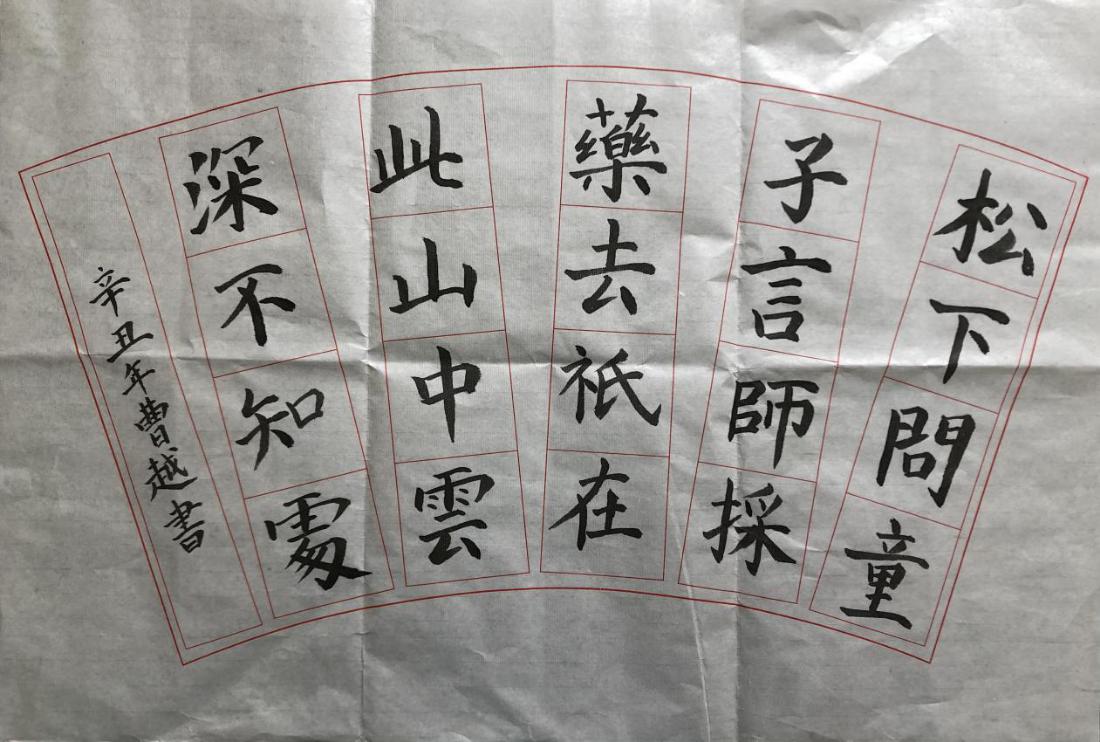 松下問童
子言師採
藥去祇在
此山中雲
深不知處
辛丑年曹越書